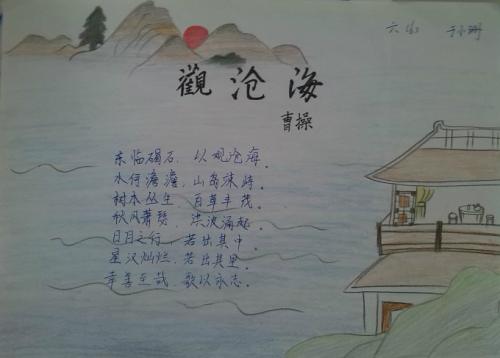 六(5) 于小珊
觀沧海
曹操
东临碣石，以观沧海。
水何澹澹，山岛竦峙。
树木丛生，百草丰茂。
秋风萧瑟，洪波涌起。
日月之行，若出其中。
星汉灿烂，若出其里。
幸甚至哉，歌以咏志。